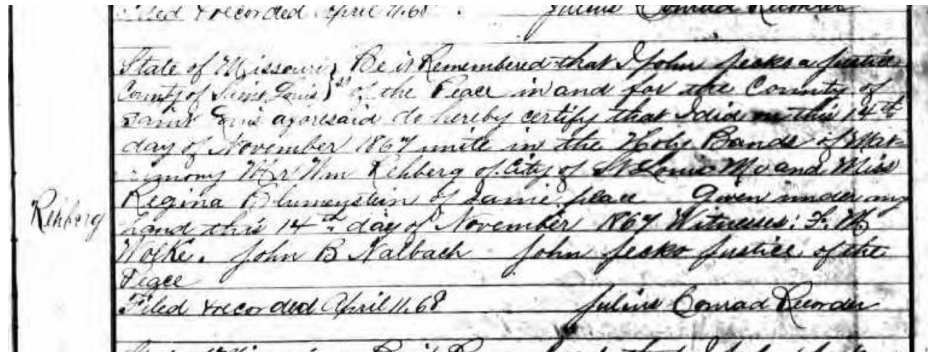 Filed & recorded April 11. 68. Julius Conrad Recorder
State of Missouri } Be it Remembered that I John Jecko a Justice
County of Saint Louis } ss of the Peace in and for the County of
Saint Louis aforesaid do hereby certify that I did on this 14th
day of November 1867 unite in the Holy Bands of Mat-
rimony Mr Wm Rehberg of City of St Louis Mo and Miss
Rehberg
Regina Blumenstein of same place Given under my
hand this 14th day of November 1867 Witnesses: F. M
Wolke. John B Nalbach John Jecko Justice of the
Peace
Filed & recorded April 11. 68 Julius Conrad Recorder